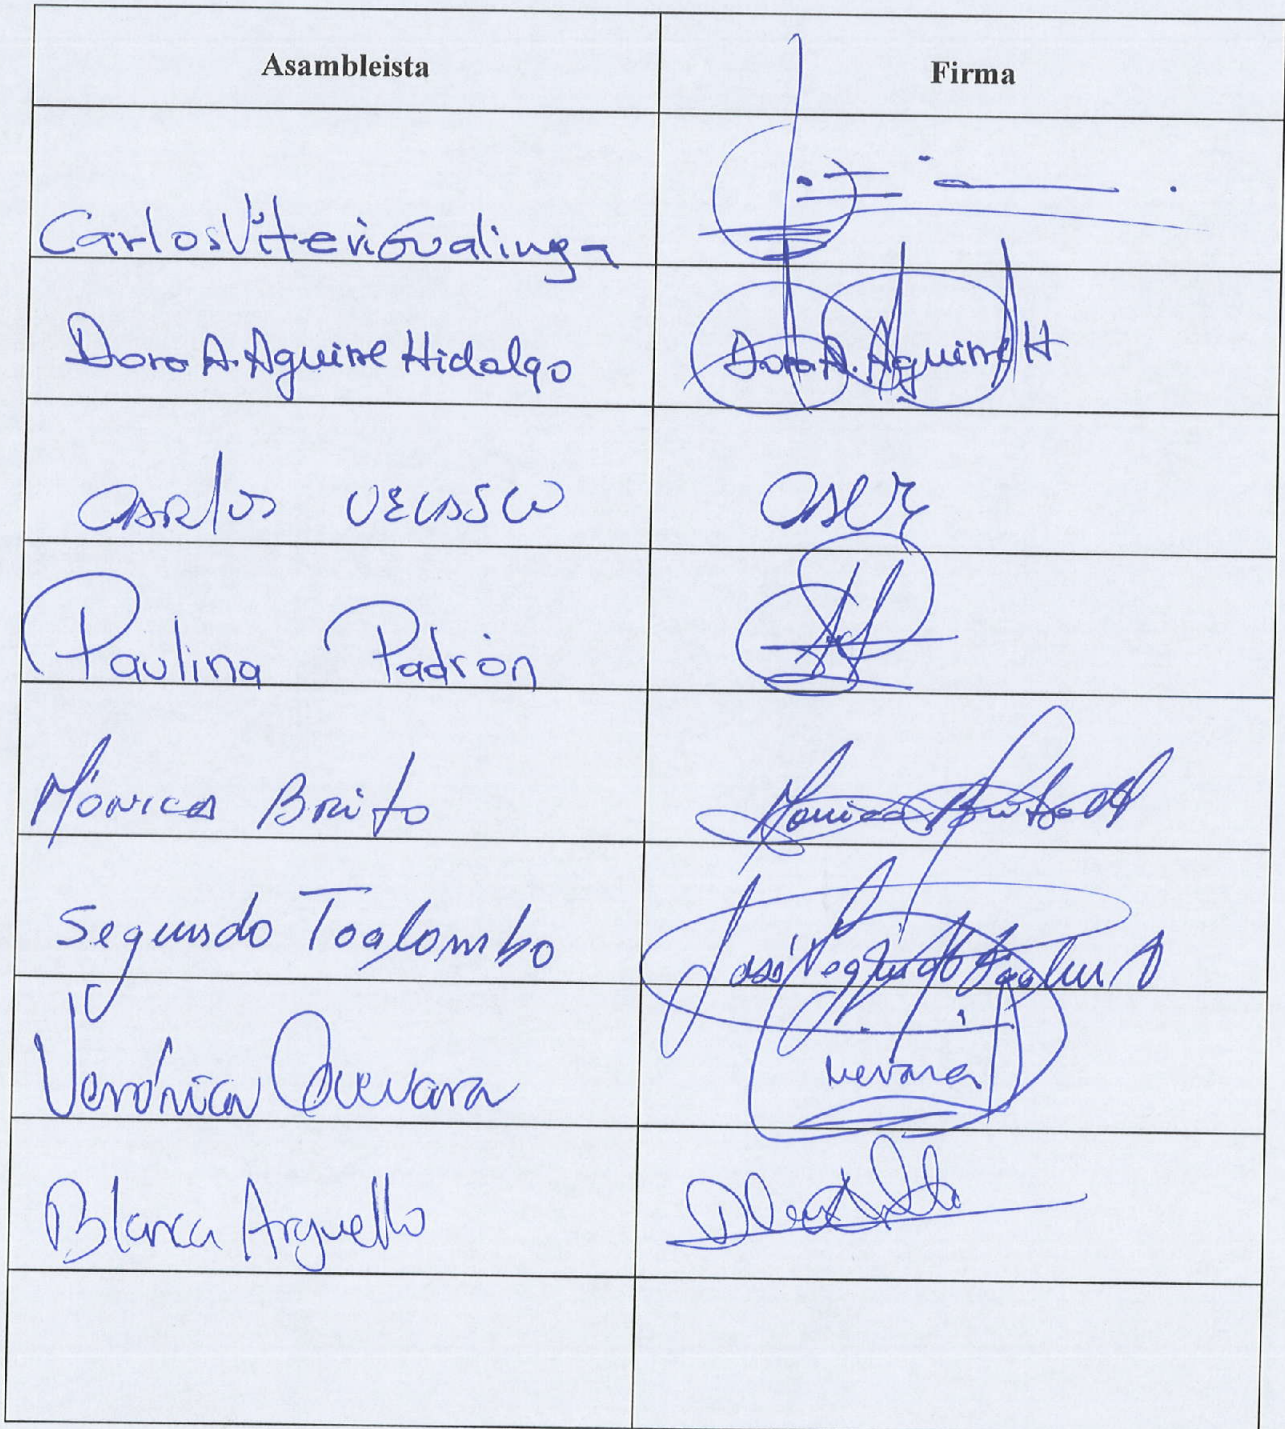 Asambleista Firma
Carlos Viteri Gualinga
Dora A. Aguirre Hidalgo Dora A. Aguirre H
Carlos Velasco
Paulina Padrón
Mónica Brito Monica Brito
Segundo Toalombo José Segundo
Verónica Guevara
Blanca Arguello